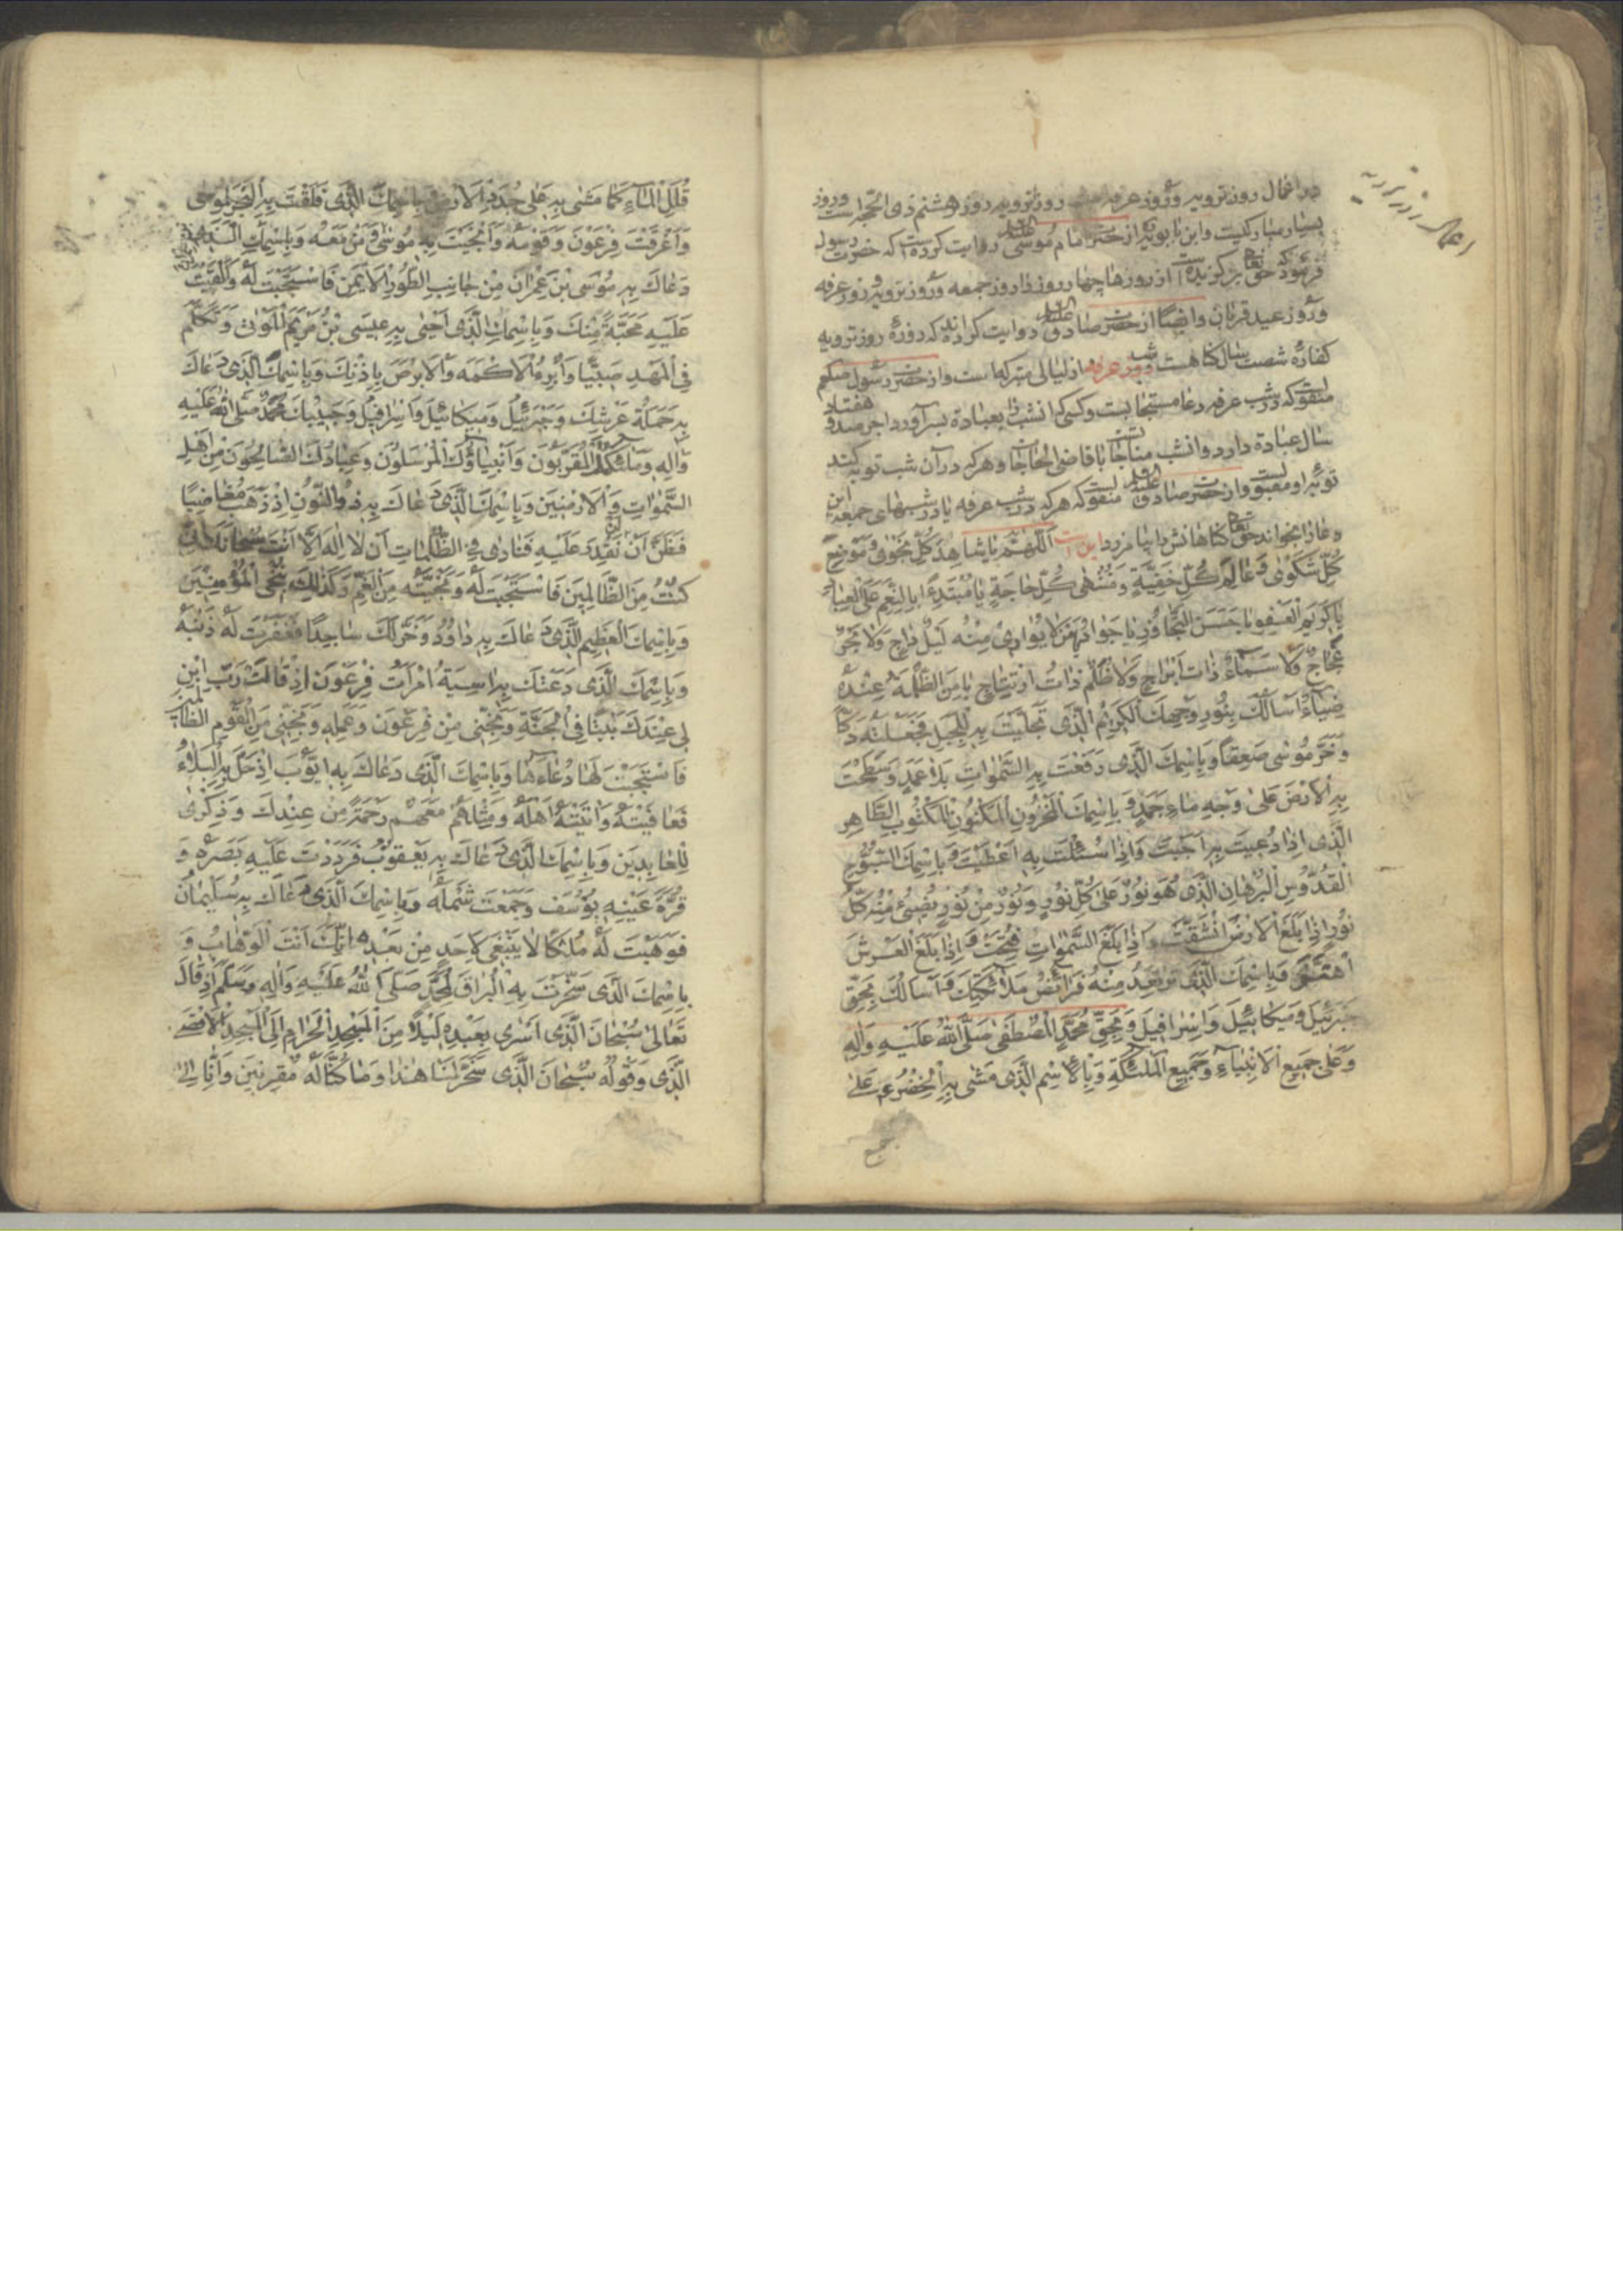 اعمال روز ترویه
در اعمال روز ترویه و روز عرفه روز ترویه روز هشتم ذی الحجه است و روز
بسیار مبارکیست و ابن بابویه از حضرت امام موسی علیه السلام روایت کرده است که حضرت رسول
فرمود که حق تعالی برگزیده است از روزها چهار روز را روز جمعه و روز ترویه و روز عرفه
و روز عید قربان و ایضا از حضرت صادق علیه السلام روایت کرده‌اند که روزه روز ترویه
کفاره شصت سال گناهست و شب عرفه از لیالی متبرکه است و از حضرت رسول صلعم
منقولست که در شب عرفه دعا مستجابست و کسی که انشب را بعبادة بسر آورد اجر صد و هفتاد
سال عبادة دارد و انشب مناجات با قاضی الحاجاتست و هر که در آن شب توبه کند
توبه او مقبولست و از حضرت صادق علیه السلام منقولست که هر که در شب عرفه یا در شبهای جمعه این
دعا را بخواند حق تعالی گناهانش را بیامرزد این است اَللّهُمَّ یا شاهِدَ کُلِّ نَجْوی وَ مَوْضِعَ
کُلِّ شَکْوی وَ عالِمَ کُلِّ خَفِیَّةٍ وَ مُنْتَهی کُلِّ حاجَةٍ یا مُبْتَدِءًا بِالنِّعَمِ عَلَی الْعِبادِ
یا کَرِیمَ الْعَفْوِ یا حَسَنَ التَّجاوُزِ یا جَوادُ یا مَنْ لا یُواری مِنْهُ لَیْلٌ داجٍ وَلا بَحْرٌ
عَجّاجٌ وَلا سَماءٌ ذاتُ اَبْراجٍ وَلا ظُلَمٌ ذاتُ ارْتِتاجٍ یا مَنِ الظُّلْمَةُ عِنْدَهُ
ضِیاءٌ اَسْأَلُکَ بِنُورِ وَجْهِکَ الْکَرِیمِ الَّذی تَجَلَّیْتَ بِهِ لِلْجَبَلِ فَجَعَلْتَهُ دَکًّا
وَ خَرَّ مُوسی صَعِقًا وَ بِاسْمِکَ الَّذی رَفَعْتَ بِهِ السَّمواتِ بِلا عَمَدٍ وَ سَطَحْتَ
بِهِ الْاَرْضَ عَلی وَجْهِ ماءٍ جَمَدٍ وَ بِاسْمِکَ الْمَخْزُونِ الْمَکْنُونِ الْمَکْتُوبِ الطّاهِرِ
الَّذی اِذا دُعِیتَ بِهِ اَجَبْتَ وَ اِذا سُئِلْتَ بِهِ اَعْطَیْتَ وَ بِاسْمِکَ السُّبُّوحِ
الْقُدُّوسِ الْبُرْهانِ الَّذی هُوَ نُورٌ عَلی کُلِّ نُورٍ وَ نُورٌ مِنْ نُورٍ یُضِیءُ مِنْهُ کُلُّ
نُورٍ اِذا بَلَغَ الْاَرْضَ انْشَقَّتْ وَ اِذا بَلَغَ السَّمواتِ فُتِحَتْ وَ اِذا بَلَغَ الْعَرْشَ
اهْتَزَّ وَ بِاسْمِکَ الَّذی تَرْتَعِدُ مِنْهُ فَرائِصُ مَلائِکَتِکَ وَ اَسْأَلُکَ بِحَقِّ
جَبْرَئِیلَ وَ مِیکائِیلَ وَ اِسْرافِیلَ وَ بِحَقِّ مُحَمَّدٍ الْمُصْطَفی صَلَّی اللهُ عَلَیْهِ وَ آلِهِ
وَ عَلی جَمِیعِ الْاَنْبِیاءِ وَ جَمِیعِ الْمَلئِکَةِ وَ بِالْاِسْمِ الَّذی مَشی بِهِ الْخِضْرُ عَلی
قُلَلِ الْماءِ کَما مَشی بِهِ عَلی جُدَدِ الْاَرْضِ وَ بِاسْمِکَ الَّذی فَلَقْتَ بِهِ الْبَحْرَ لِمُوسی
وَ اَغْرَقْتَ فِرْعَوْنَ وَ قَوْمَهُ وَ اَنْجَیْتَ بِهِ مُوسی وَ مَنْ مَعَهُ وَ بِاسْمِکَ الَّذی
دَعاکَ بِهِ مُوسَی بْنُ عِمْرانَ مِنْ جانِبِ الطُّورِ الْاَیْمَنِ فَاسْتَجَبْتَ لَهُ وَ اَلْقَیْتَ
عَلَیْهِ مَحَبَّةً مِنْکَ وَ بِاسْمِکَ الَّذی اَحْیی بِهِ عِیسَی بْنُ مَرْیَمَ الْمَوْتی وَ تَکَلَّمَ
فِی الْمَهْدِ صَبِیًّا وَ اَبْرَءَ الْاَکْمَهَ وَ الْاَبْرَصَ بِاِذْنِکَ وَ بِاسْمِکَ الَّذی دَعاکَ
بِهِ حَمَلَةُ عَرْشِکَ وَ جَبْرَئِیلُ وَ مِیکائِیلُ وَ اِسْرافِیلُ وَ حَبِیبُکَ مُحَمَّدٌ صَلَّی اللهُ عَلَیْهِ
وَ آلِهِ وَ مَلائِکَتُکَ الْمُقَرَّبُونَ وَ اَنْبِیاؤُکَ الْمُرْسَلُونَ وَ عِبادُکَ الصّالِحُونَ مِنْ اَهْلِ
السَّمواتِ وَ الْاَرَضِینَ وَ بِاسْمِکَ الَّذی دَعاکَ بِهِ ذُو النُّونِ اِذْ ذَهَبَ مُغاضِبًا
فَظَنَّ اَنْ لَنْ نَقْدِرَ عَلَیْهِ فَنادی فِی الظُّلُماتِ اَنْ لا اِلهَ اِلّا اَنْتَ سُبْحانَکَ اِنّی
کُنْتُ مِنَ الظّالِمِینَ فَاسْتَجَبْتَ لَهُ وَ نَجَّیْتَهُ مِنَ الْغَمِّ وَ کَذلِکَ نُنْجِی الْمُؤْمِنِینَ
وَ بِاسْمِکَ الْعَظِیمِ الَّذی دَعاکَ بِهِ داوُدُ وَ خَرَّ لَکَ ساجِدًا فَغَفَرْتَ لَهُ ذَنْبَهُ
وَ بِاسْمِکَ الَّذی دَعَتْکَ بِهِ اسِیَةُ امْرَأَتُ فِرْعَوْنَ اِذْ قالَتْ رَبِّ ابْنِ
لی عِنْدَکَ بَیْتًا فِی الْجَنَّةِ وَ نَجِّنی مِنْ فِرْعَوْنَ وَ عَمَلِهِ وَ نَجِّنی مِنَ الْقَوْمِ الظّالِمِینَ
فَاسْتَجَبْتَ لَها دُعاءَها وَ بِاسْمِکَ الَّذی دَعاکَ بِهِ اَیُّوبُ اِذْ حَلَّ بِهِ الْبَلاءُ
فَعافَیْتَهُ وَ اتَیْتَهُ اَهْلَهُ وَ مِثْلَهُمْ مَعَهُمْ رَحْمَةً مِنْ عِنْدِکَ وَ ذِکْری
لِلْعابِدِینَ وَ بِاسْمِکَ الَّذی دَعاکَ بِهِ یَعْقُوبُ فَرَدَدْتَ عَلَیْهِ بَصَرَهُ وَ
قُرَّةَ عَیْنِهِ یُوسُفَ وَ جَمَعْتَ شَمْلَهُ وَ بِاسْمِکَ الَّذی دَعاکَ بِهِ سُلَیْمانُ
فَوَهَبْتَ لَهُ مُلْکًا لا یَنْبَغی لِاَحَدٍ مِنْ بَعْدِهِ اِنَّکَ اَنْتَ الْوَهّابُ وَ
بِاسْمِکَ الَّذی سَخَّرْتَ بِهِ الْبُراقَ لِمُحَمَّدٍ صَلَّی اللهُ عَلَیْهِ وَ آلِهِ وَ سَلَّمَ اِذْ قالَ
تَعالی سُبْحانَ الَّذی اَسْری بِعَبْدِهِ لَیْلًا مِنَ الْمَسْجِدِ الْحَرامِ اِلَی الْمَسْجِدِ الْاَقْصَی
الَّذی وَ قَوْلُهُ سُبْحانَ الَّذی سَخَّرَ لَنا هذا وَ ما کُنّا لَهُ مُقْرِنِینَ وَ اِنّا اِلی